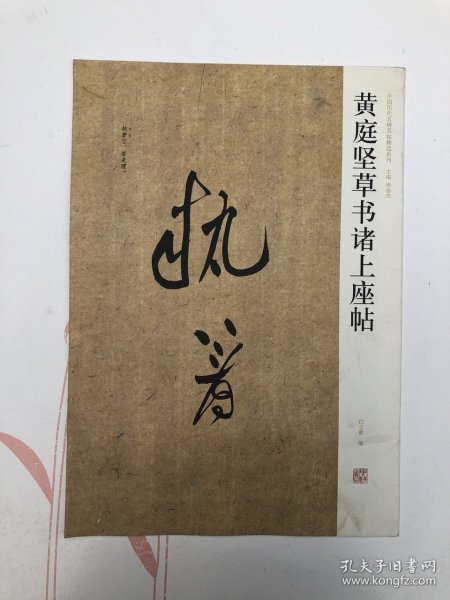 中国历代名碑名帖精选系列 主编
黄庭坚草书诸上座帖
编
执著
孔夫子旧书网
www.kongfz.com